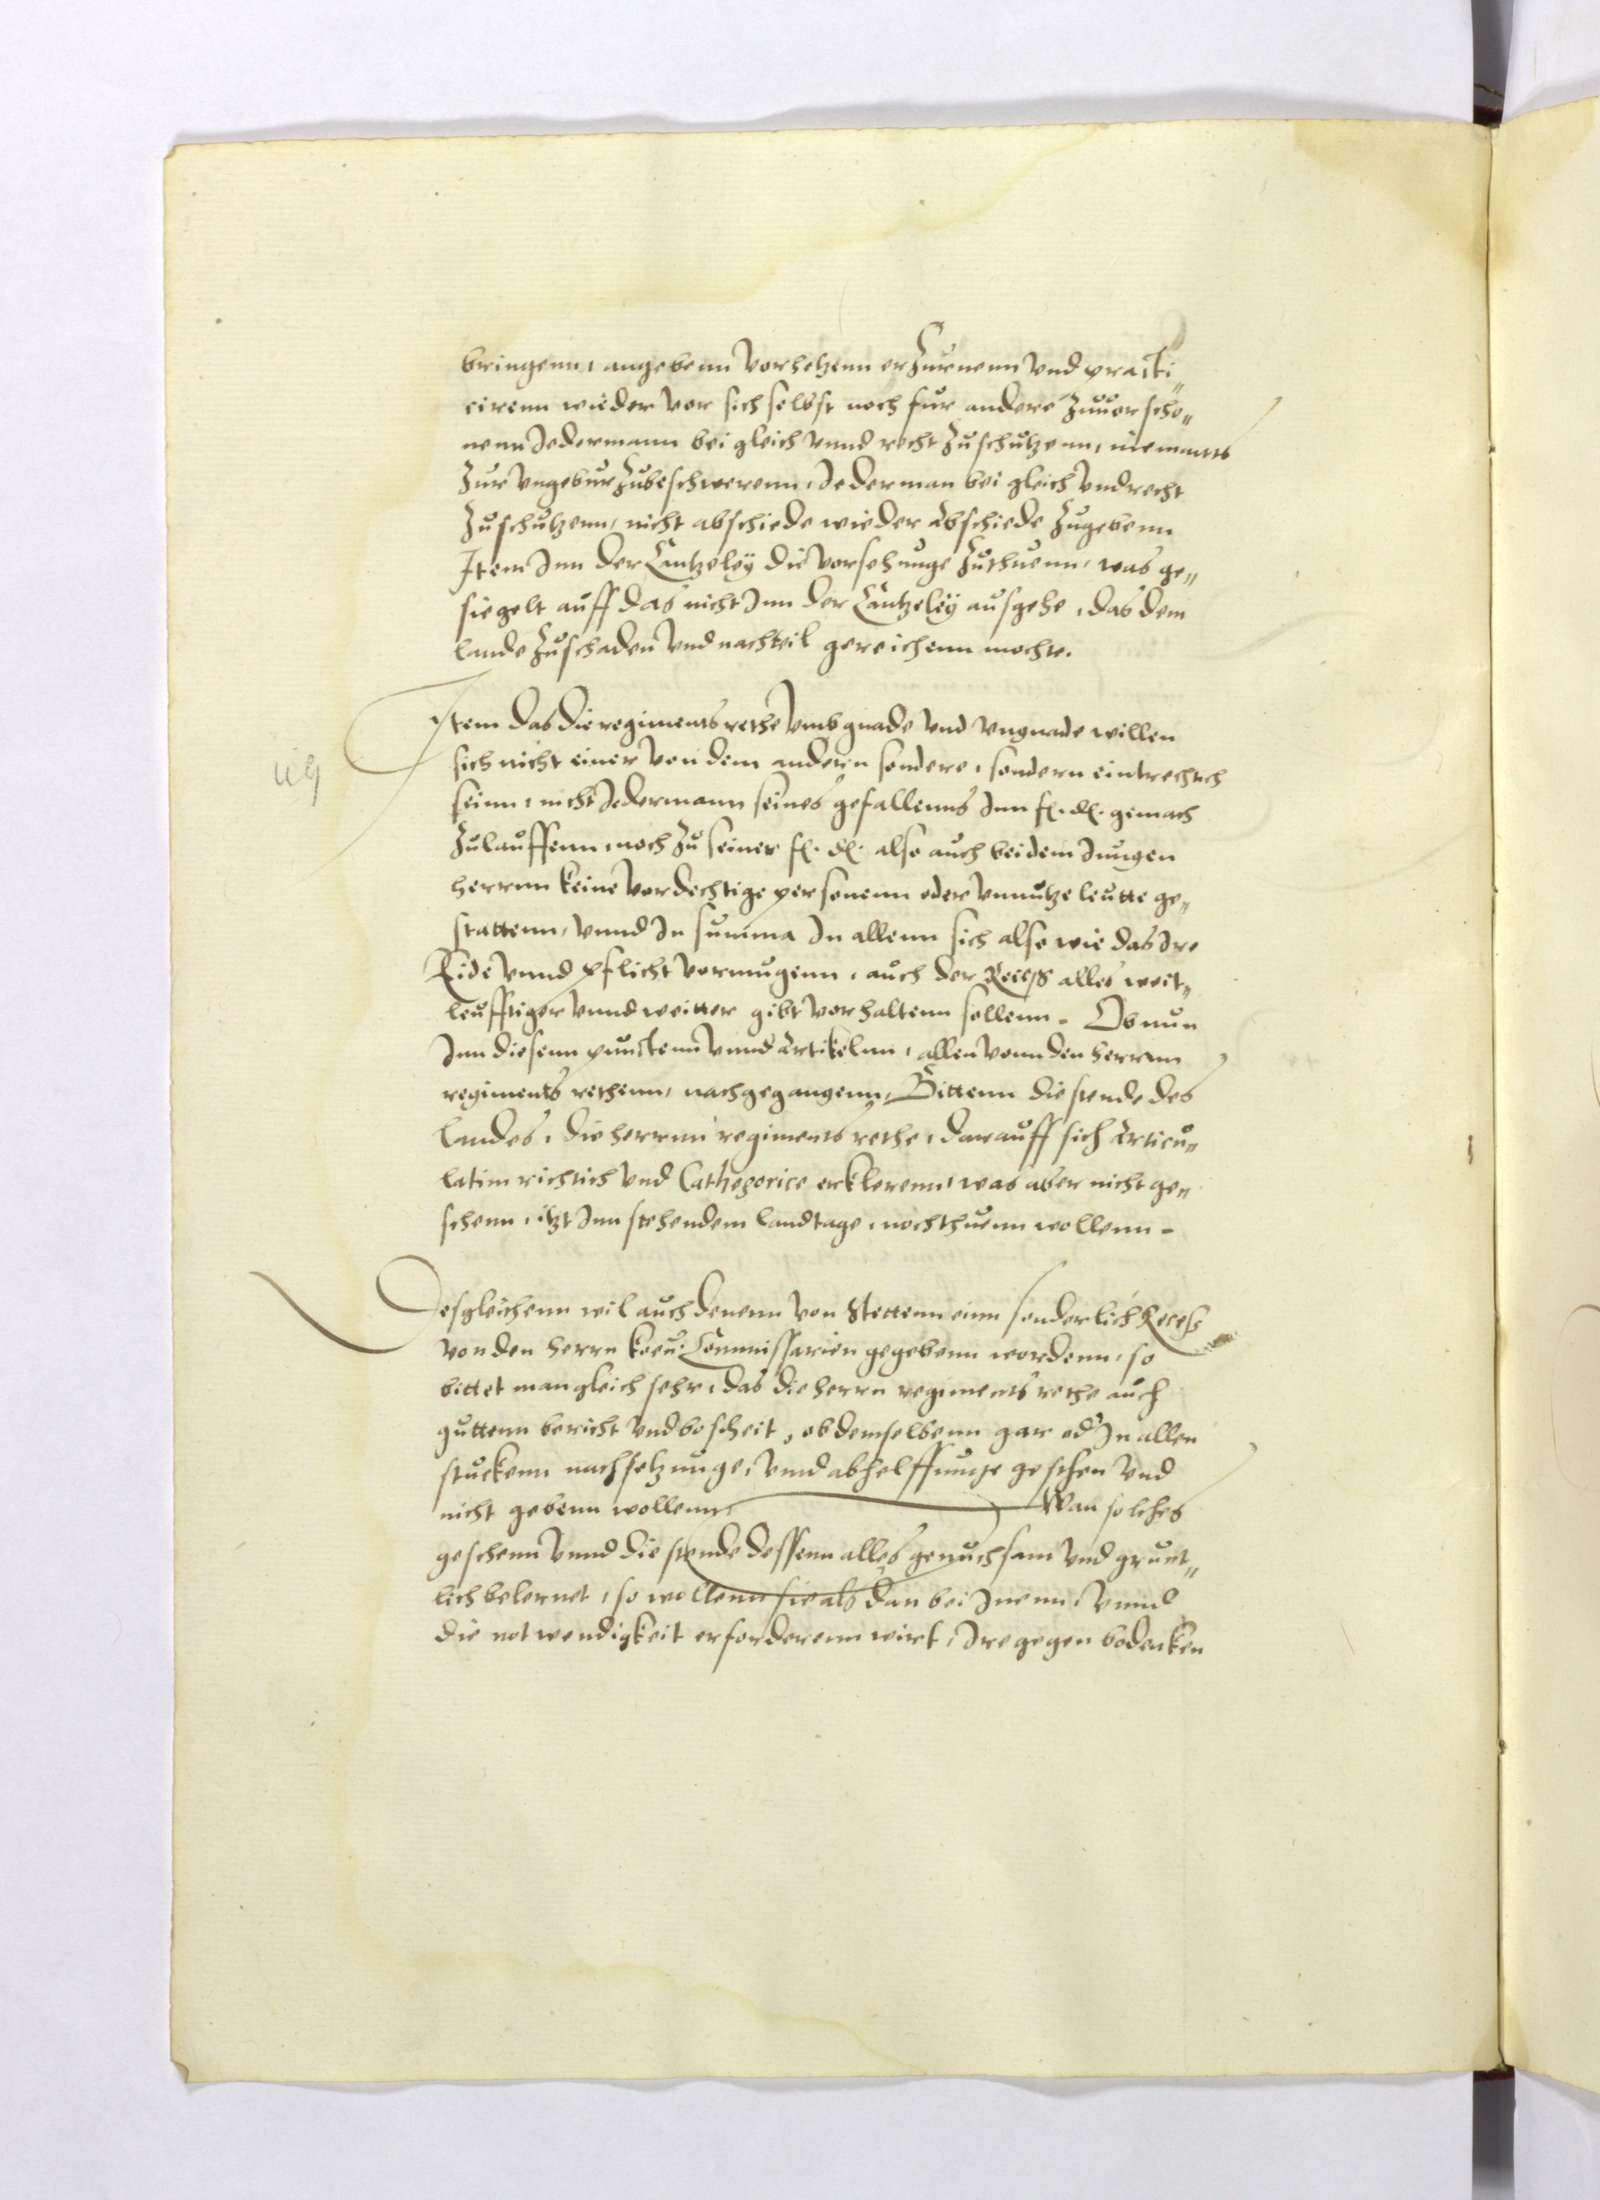 bringenn, angebenn vorhetzenn erzurnenn vnd practi„
cirenn wieder vor sich selbst noch fur andere zuuorscho„
nenn Jedermann bei gleich vnnd recht zuschutzenn, niemants
zur vngebur zubeschwerenn, Jederman bei gleich vnd recht
zuschutzenn, nicht abschiede wieder abschiede zugebenn
Item Inn der Cantzeleÿ die vorsehunge zuthuenn, was ge„
siegelt auff das nicht Inn der Cantzeleÿ ausgehe, das dem
lande zuschaden vnd nachteil gereichenn mochte.
Item das die regimentsrethe vmb gnade vnd vngnade willen
sich nicht einer von dem andern sondere, sondern eintrechtich
seinn, nicht Jedermann seines gefallenns Inn f. d. gemach
zulauffenn, noch zu seiner f. d. also auch bei dem Jungen
herrnn keine vordechtige personenn oder vnnutze leutte ge„
stattenn, vnnd In summa In allenn sich also wie das Ire
Eide vnnd pflicht vormugenn, auch der Recess alles weit„
leufftiger vnnd weitter gibt vorhaltenn sollenn. Ob nun
Inn diesenn punctenn vnnd Artikelnn, allen vonn den herrnn
regiments rethenn, nachgegangenn, Bittenn die stende des
landes, die herrnn regiments rethe, darauff sich Articu„
latim richtich vnd Cathegorice erklerenn, was aber nicht ge„
schenn, itzt Inn stehendem landtage, noch thuenn wollenn.
Desgleichenn wil auch denenn von Stettenn einn sonderlich Recess
von den herrn koeu: Commissarien gegebenn wordenn, so
bittet man gleich sehr, das die herrn regiments rethe auch
guttenn bericht vnd bescheit, ob demselbenn gar od In allen
stuckenn nachsetzunge, vnnd abhelffunge geschen vnd
nicht gebenn wollenn, Wan solches
geschenn vnnd die stende dessenn alles genuchsam vnd grunt„
lich belernet, so wollenn sie als dan bei Inenn, vnnd
die notwendigkeit erforderenn wirt, Ire gegen bedencken